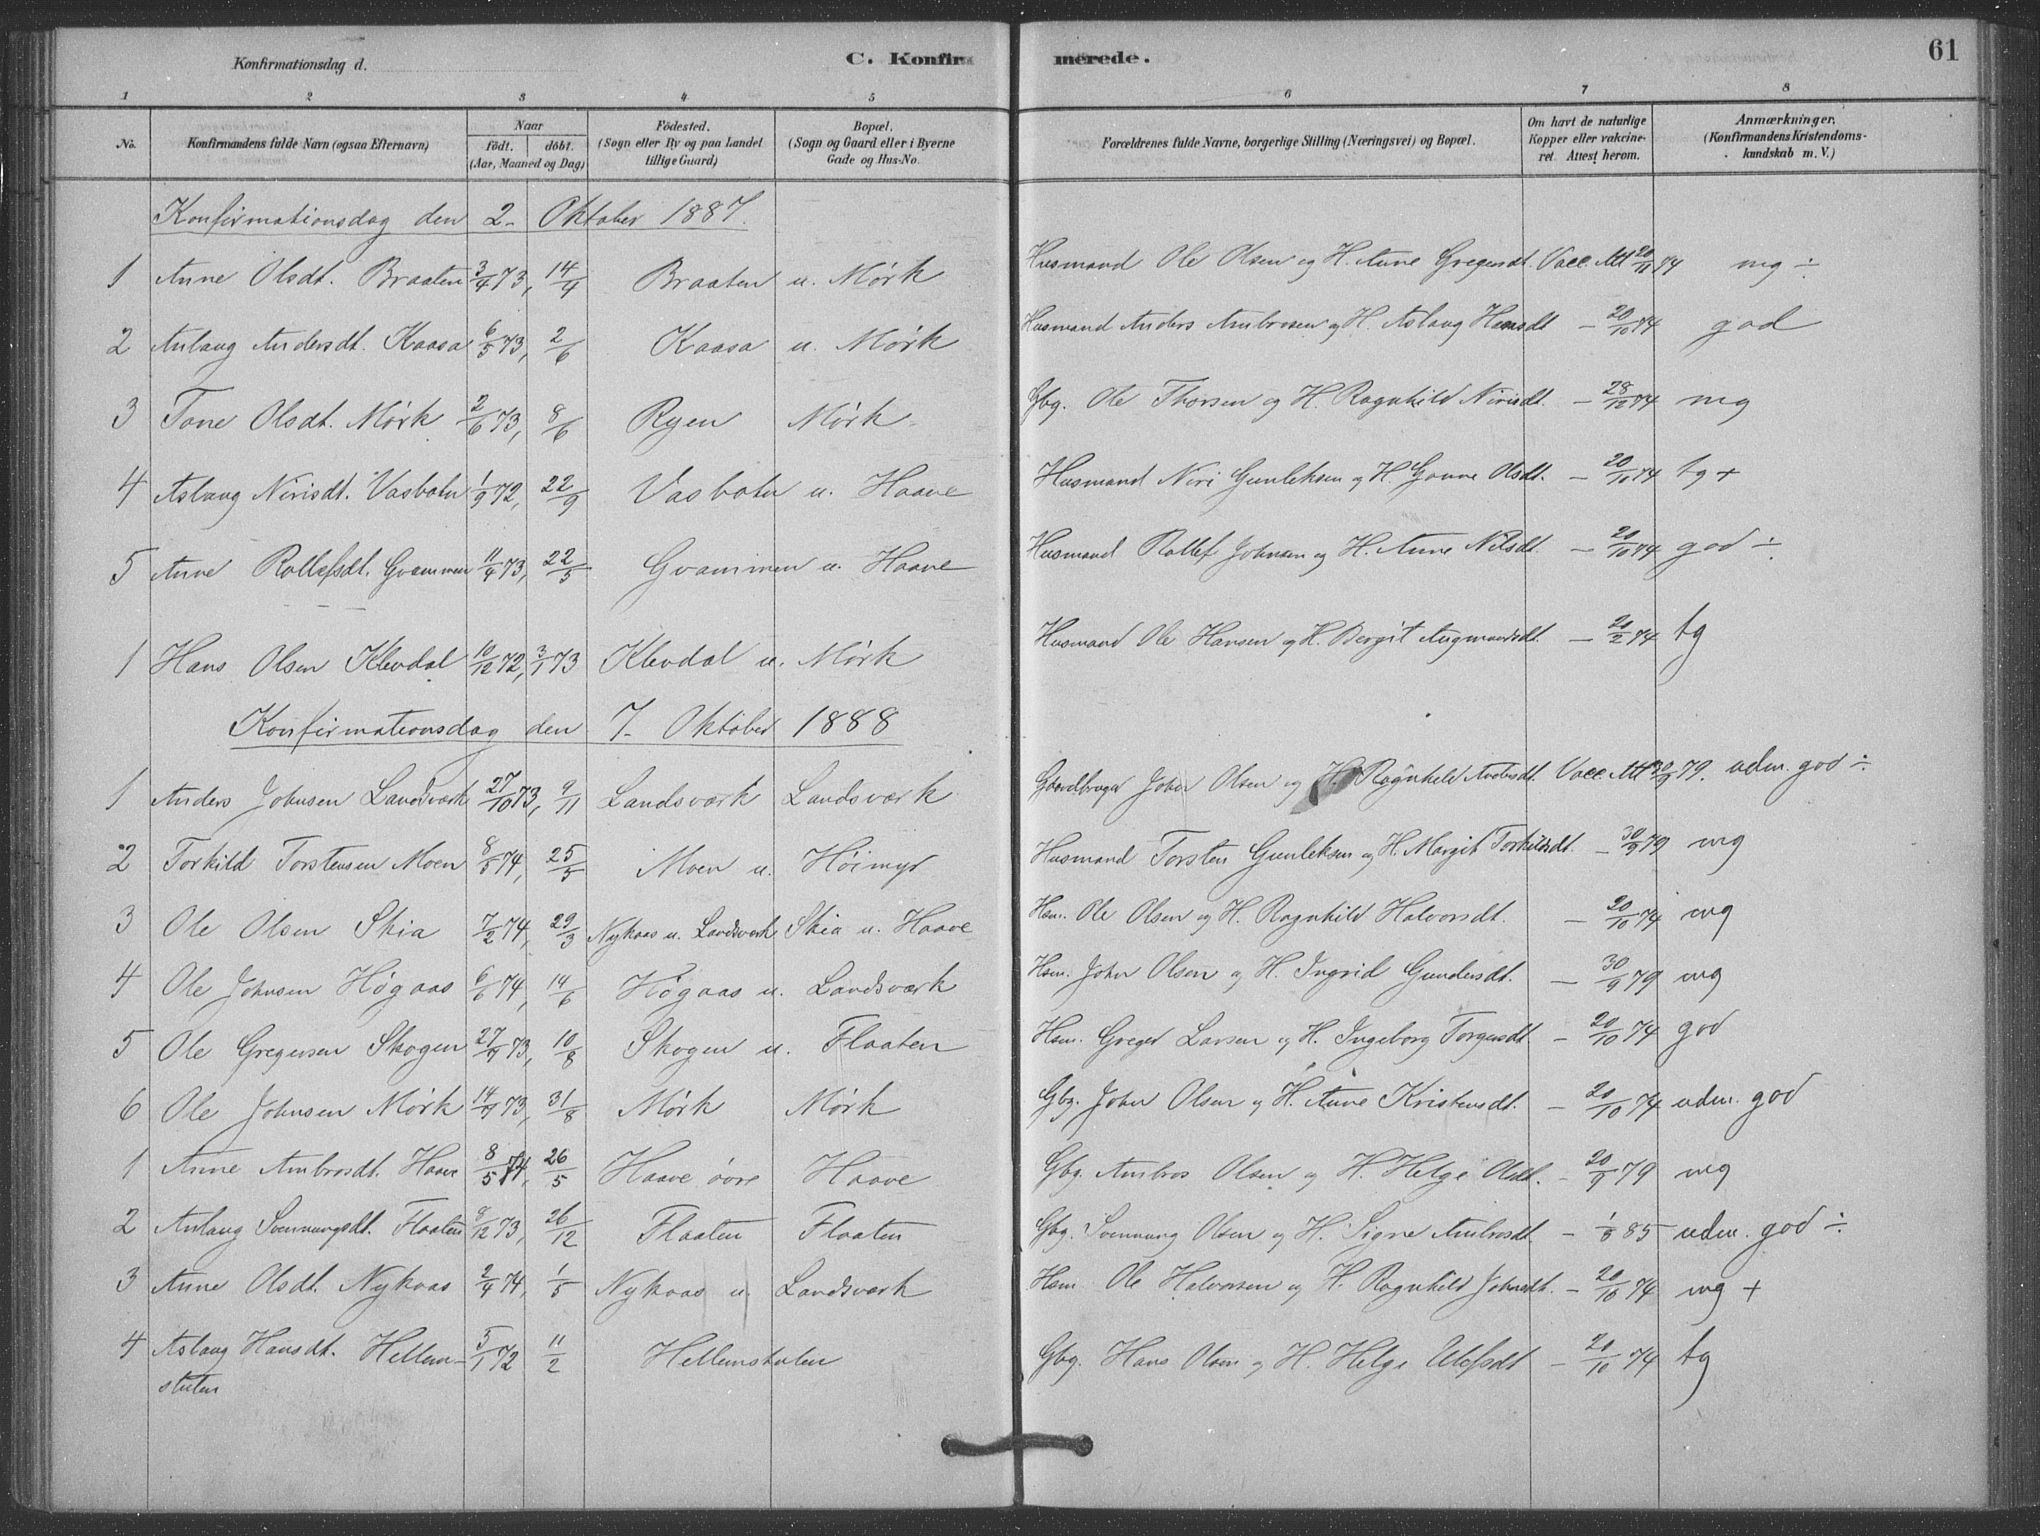 Konfirmationsdag d. C. Konfirmerede. 61
1 2 3 4 5 6 7 8
No. Konfirmandens fulde Navn (ogsaa Efternavn) Naar födt. döbt. (Aar, Maaned og Dag) Födested. (Sogn eller By og paa Landet tillige Gaard) Bopæl. (Sogn og Gaard eller i Byerne Gade og Hus-No. Forældrenes fulde Navne, borgerlige Stilling (Næringsvei) og Bopæl. Om havt de naturlige Kopper eller vakcineret. Attest herom. Anmærkninger. (Konfirmandens Kristendomskundskab m. V.)
Konfirmationsdag den 2- Oktober 1887.
1 Anne Olsdt. Braaten 3/4 73, 14/4 Braaten u. Mørk Husmand Ole Olsen og H. Anne Gregersdt. Vacc. Att 20/11 74 mg ÷
2 Aslaug Andersdt. Kaasa 6/5 73, 2/6 Kaasa u. Mørk Husmand Anders Ambrosen og H. Aslaug Hansdt – 20/10 74 god
3 Tone Olsdt. Mørk 2/6 73, 8/6 Ryen Mørk Gbg. Ole Thorsen og H. Ragnhild Nirisdt. – 28/12 74 mg
4 Aslaug Nirisdt. Vasboten 1/9 72, 22/9 Vasboten u. Haave Husmand Niri Gunleksen og H. Gonne Olsdt. – 20/10 74 tg +
5 Anne Rollefsdt. Gvammen 11/4 73, 22/5 Gvammen u. Haave Husmand Rollef Johnsen og H. Anne Nilsdt. – 20/10 74 god ÷
1 Hans Olsen Klevdal 10/12 72, 3/1 73 Klevdal u. Mørk Husmand Ole Hansen og H. Bergit Augmundsdt. – 20/2 74 tg
Konfirmationsdag den 7- Oktober 1888
1 Anders Johnsen Landsværk 27/10 73, 9/11 Landsværk Landsværk Gaardbruger John Olsen og H. Ragnhild Andersdt. Vacc. Att 30/9 79. uden. god ÷
2 Torkild Torstensen Moen 8/5 74, 25/5 Moen u. Höimyr Husmand Torsten Gunleksen og H. Margit Torkildsdt – 30/9 79 mg
3 Ole Olsen Skia 7/2 74, 29/3 Nykaas u. Landsværk Skia u. Haave Hsm. Ole Olsen og H. Ragnhild Halvorsdt. – 20/10 74 mg
4 Ole Johnsen Høgaas 6/6 74, 14/6 Høgaas u. Landsværk Hsm. John Olsen og H. Ingrid Gundersdt. – 30/9 79 mg
5 Ole Gregersen Skogen 27/7 73, 10/8 Skogen u. Flaaten Hsm. Greger Larsen og H. Ingeborg Torgersdt – 20/10 74 god
6 Ole Johnsen Mørk 14/7 73, 31/8 Mørk Mørk Gbg. John Olsen og H. Anne Kristensdt. – 20/10 74 uden. god
1 Anne Ambrosdt. Haave 8/5 74, 26/5 Haave övre Haave Gbg. Ambros Olsen og H. Helge Olsdt. – 20/9 79 mg
2 Aslaug Svennungsdt. Flaaten 8/12 73, 26/12 Flaaten Flaaten Gbg. Svennung Olsen og H. Signe Ambrosdt. – 1/8 85 uden. god ÷
3 Anne Olsdt. Nykaas 2/4 74, 1/5 Nykaas u. Landsværk Hsm Ole Halvorsen og H. Ragnhild Johnsdt. – 20/10 74 mg +
4 Aslaug Hansdt. Hellem- 5/1 72 11/2 Hellemstulen Gbg. Hans Olsen og H. Helge Ulefsdt – 20/10 74 tg
stulen